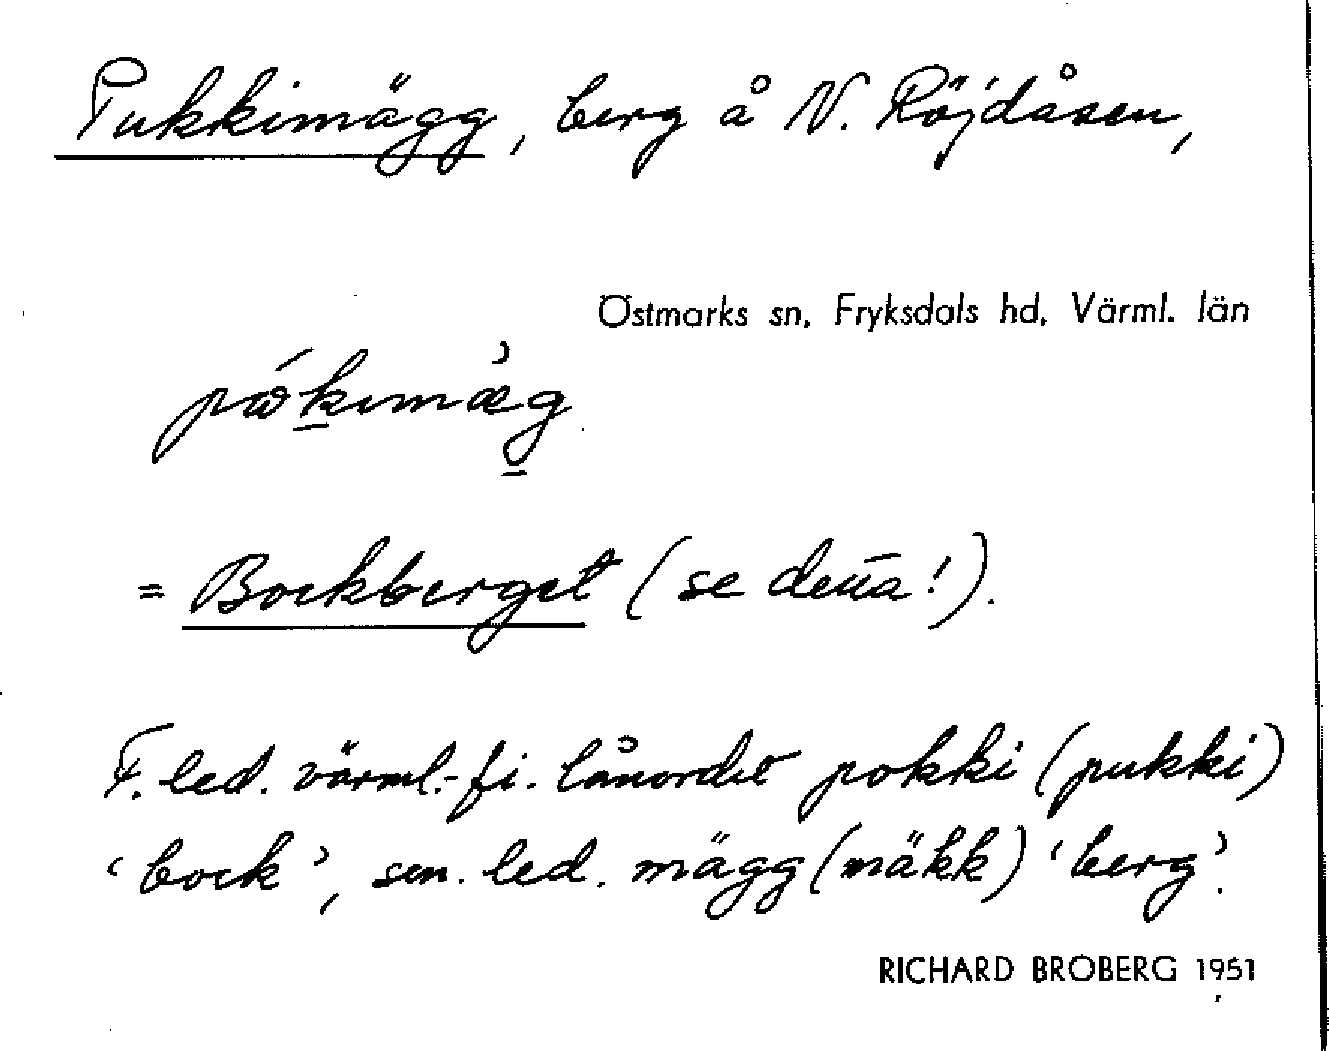 Pukkimägg, berg å N. Röjdåsen,
Östmarks sn, Fryksdals hd, Värml. län
= Bockberget (se deña!).
F. led. värml.-fi. lånordet pokki (pukki)
‘bock’, sen. led. mägg (mäkk) ‘berg’.
RICHARD BROBERG 1951